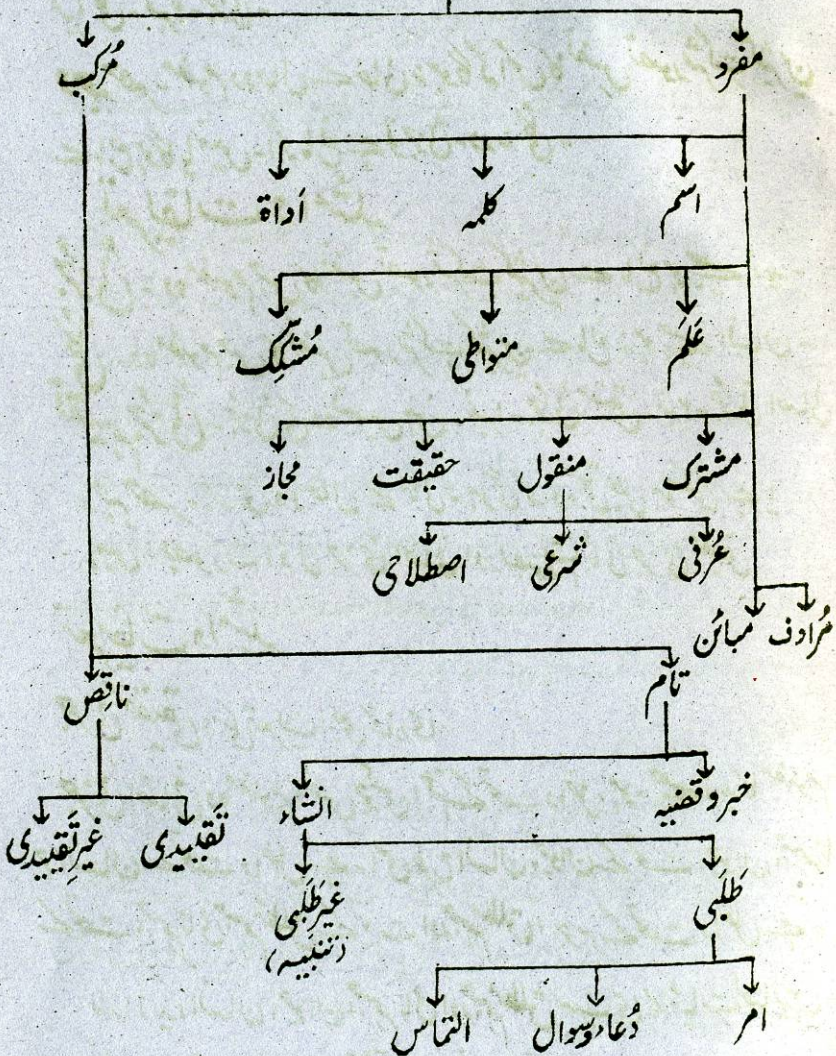 مفرد مُرکب
اسم کلمہ اَداة
عَلَم متواطی مُشکِّک
مشترک منقول حقیقت مجاز
عُرفی شرعی اصطلاحی
مُرادف مبائن
تام ناقِص
خبر و قضیہ انشاء
تَقییدی غیرِ تَقییدی
طَلَبی غیر طَلَبی
(تنبیہ)
امر دُعاء و سوال التماس